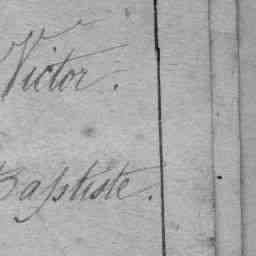 Victor.
Baptiste.